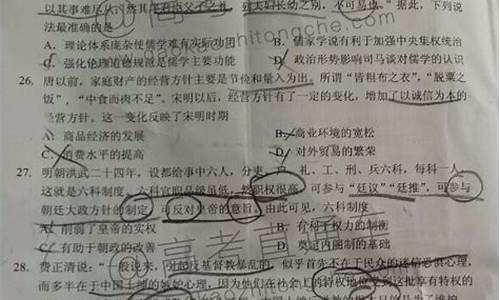 以其事难尽从
夫妇长幼之别,不可易也。”据此,下列说
法最准确的是
A. 理论体系庞杂使儒学难有实际功用
B. 儒家学说有利于加强中央集权统治
C. 强化伦理道德规范是儒学主要功能
D. 政治形势影响司马谈对儒学的认识
26. 唐以前,家庭财产的经营方针主要是节俭和量入为出。所谓“皆粗布之衣”,“脱粟之
饭”,“中食而肉不足”。宋明以后,经营方针有了一定的变化,增加了以诚信为本的
经营方针。这一变化反映了宋明时期
A. 商品经济的发展
B. 商业环境的宽松
C. 消费水平的提高
D. 对外贸易的繁荣
27. 明朝洪武二十四年,设都给事中六人,分吏、户、礼、工、刑、兵六科,每科一人,
这就是六科制度。六科官职品级虽低,然职权很高,可参与“廷议”“廷推”,可参与
朝廷大政方针的制定,可反对皇帝的意旨。由此可见,六科制度
A. 削弱了皇帝的实权
B. 有利于权力的制衡
C. 有助于朝政的改善
D. 奠定内阁制的基础
28. 费正清说:“一般说来,对起反基督教暴乱的,似乎首先不在于民众的迷信恐惧心理,
而多半在于中国士绅的嫉妒心理,因为他们在社会上的特权地位受到这批享有特权的